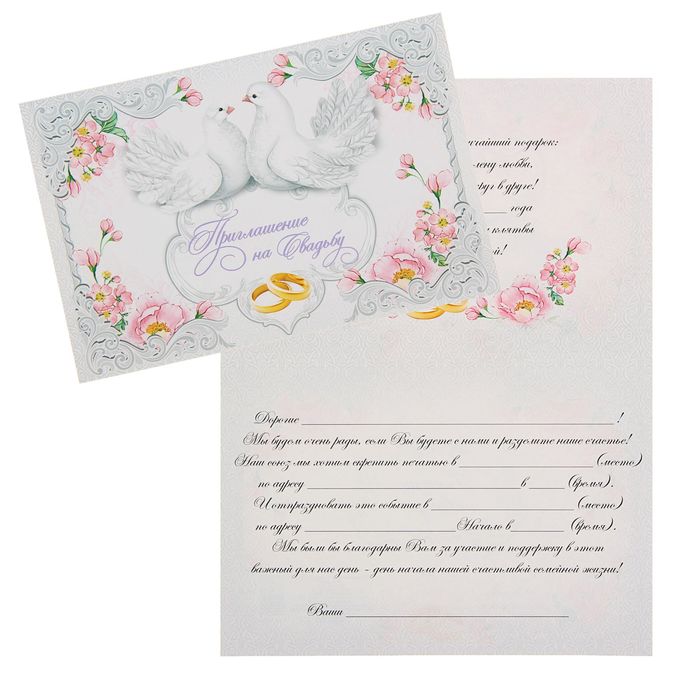 Приглашение
на Свадьбу
подарок:
любви.
в друге!
_______ года
клятвы
Дорогие ______________________________________ !
Мы будем очень рады, если Вы будете с нами и разделите наше счастье!
Наш союз мы хотим скрепить печатью в ________________ (место)
по адресу __________________________ в _____ (время).
И отпраздновать это событие в ___________________ (место)
по адресу __________________ Начало в _______ (время).
Мы были бы благодарны Вам за участие и поддержку в этот
важный для нас день - день начала нашей счастливой семейной жизни!
Ваши ___________________________